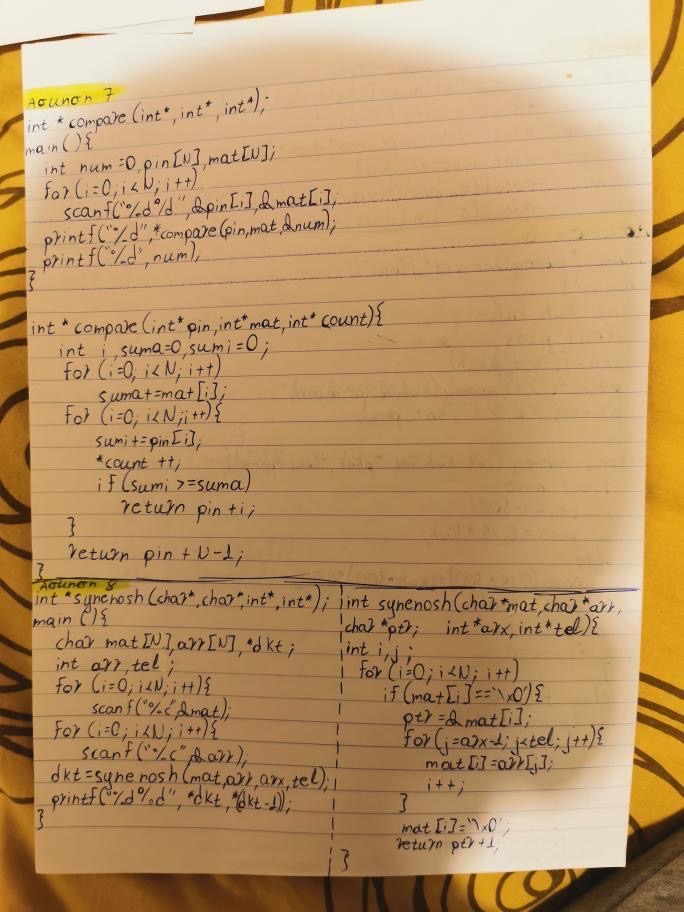 Άσκηση 7
int * compare (int*, int*, int*);
main (){
int num =0, pin[N], mat[N];
for (i=0; i<N; i++)
scanf("%d%d", &pin[i], &mat[i];
printf("%d", *compare(pin, mat, &num);
printf("%d", num);
}
int * compare (int* pin, int* mat, int* count){
int i, suma=0, sumi=0;
for (i=0; i<N; i++)
suma+=mat[i];
for (i=0; i<N; i++){
sumi+=pin[i];
*count ++;
if (sumi >=suma)
return pin+i;
}
return pin + N-1;
}
Άσκηση 8
int *synenosh (char*, char*, int*, int*);
main (){
char mat[N], arr[N], *dkt;
int arr, tel;
for (i=0; i<N; i++){
scanf("%c", &mat);
for (i=0; i<N; i++){
scanf("%c", &arr);
dkt=synenosh (mat, arr, arx, tel);
printf("%d%d", *dkt, *(dkt-1));
}
int synenosh(char *mat, char *arr,
char *ptr; int *arx, int* tel){
int i, j;
for (i=0; i<N; i++)
if (mat[i]=='\x0'){
ptr =& mat[i];
for(j=arx-1; j<tel; j++){
mat[i]=arr[j];
i++;
}
mat [i]='\x0';
return ptr+1;
}